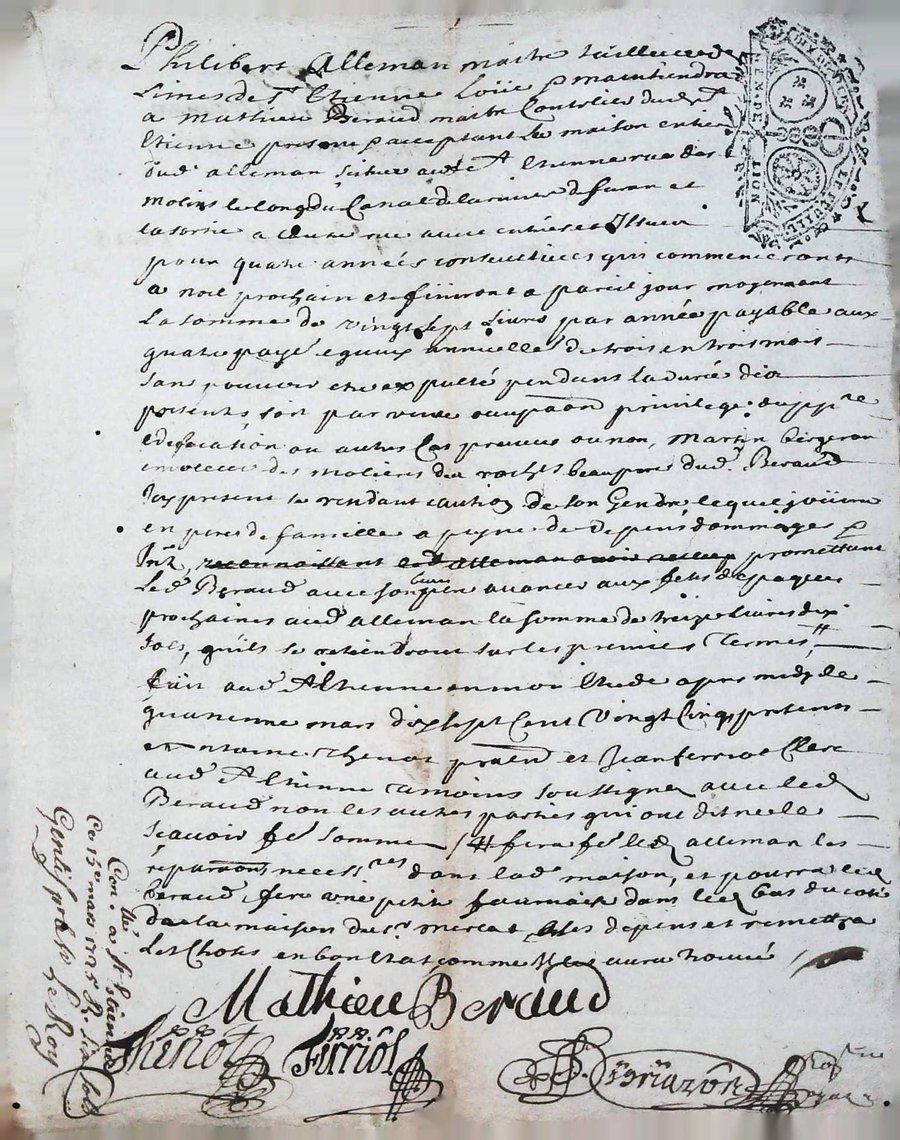 Philibert Alleman maitre tailleur de
Limes de St Etienne Loüe & maintiendra
a Mathieu Beraud maitre Coutelier dud St
Etienne present & acceptant la maison entiere
dud alleman scituée aud St Etienne rue des
molins le long du Canal de la riviere de furan et
la sortie a l'autre rue avec entrées et Issues
pour quatre années consecutives qui commenceront
a noel prochain et finiront a pareil jour moyennant
La somme de vingt sept Livres par année payable aux
quatre payes egaux annuelles de trois en trois mois
sans pouvoir etre expulsé pendant la durée des
presentes soit par vente privilege
ou autres Cas preveus ou non, Martin bergeron
des molieres des beaupere dud. Beraud
Icy present se rendant caution de son Gendre lequel joüira
en pere de famille a peyne de Depens dommages &
Intts, reconnaissant led alleman avoir receu promettant
Led Beraud avec son beau pere avancer aux fetes de paques
prochaines aud alleman la somme de treize livres dix
sols, qu'ils se retiendront sur les premiers Termes #
fait aud St Etienne en mon Etude apres midy le
mars dix sept Cent Vingt Cinq presents
antoine thenot praten et Jean ferriol Clerc
aud St Etienne temoins soussignés avec led
Beraud non les autres parties qui ont dit ne le
sçavoir fe sommes /# fera fe led alleman les
reparaons necessres dans lad maison, et pourra led
beraud fere une petite fournaise dans led bas du coté
de la maison du sr mercat, a ses depens et remettra
Les Choses en bon Etat comme Il les aura trouvé
Mathieu Beraud
Thenot Ferriol
Con. a St Etienne
Ce 15e mars 1725 R. six sols
GEN. DE LION